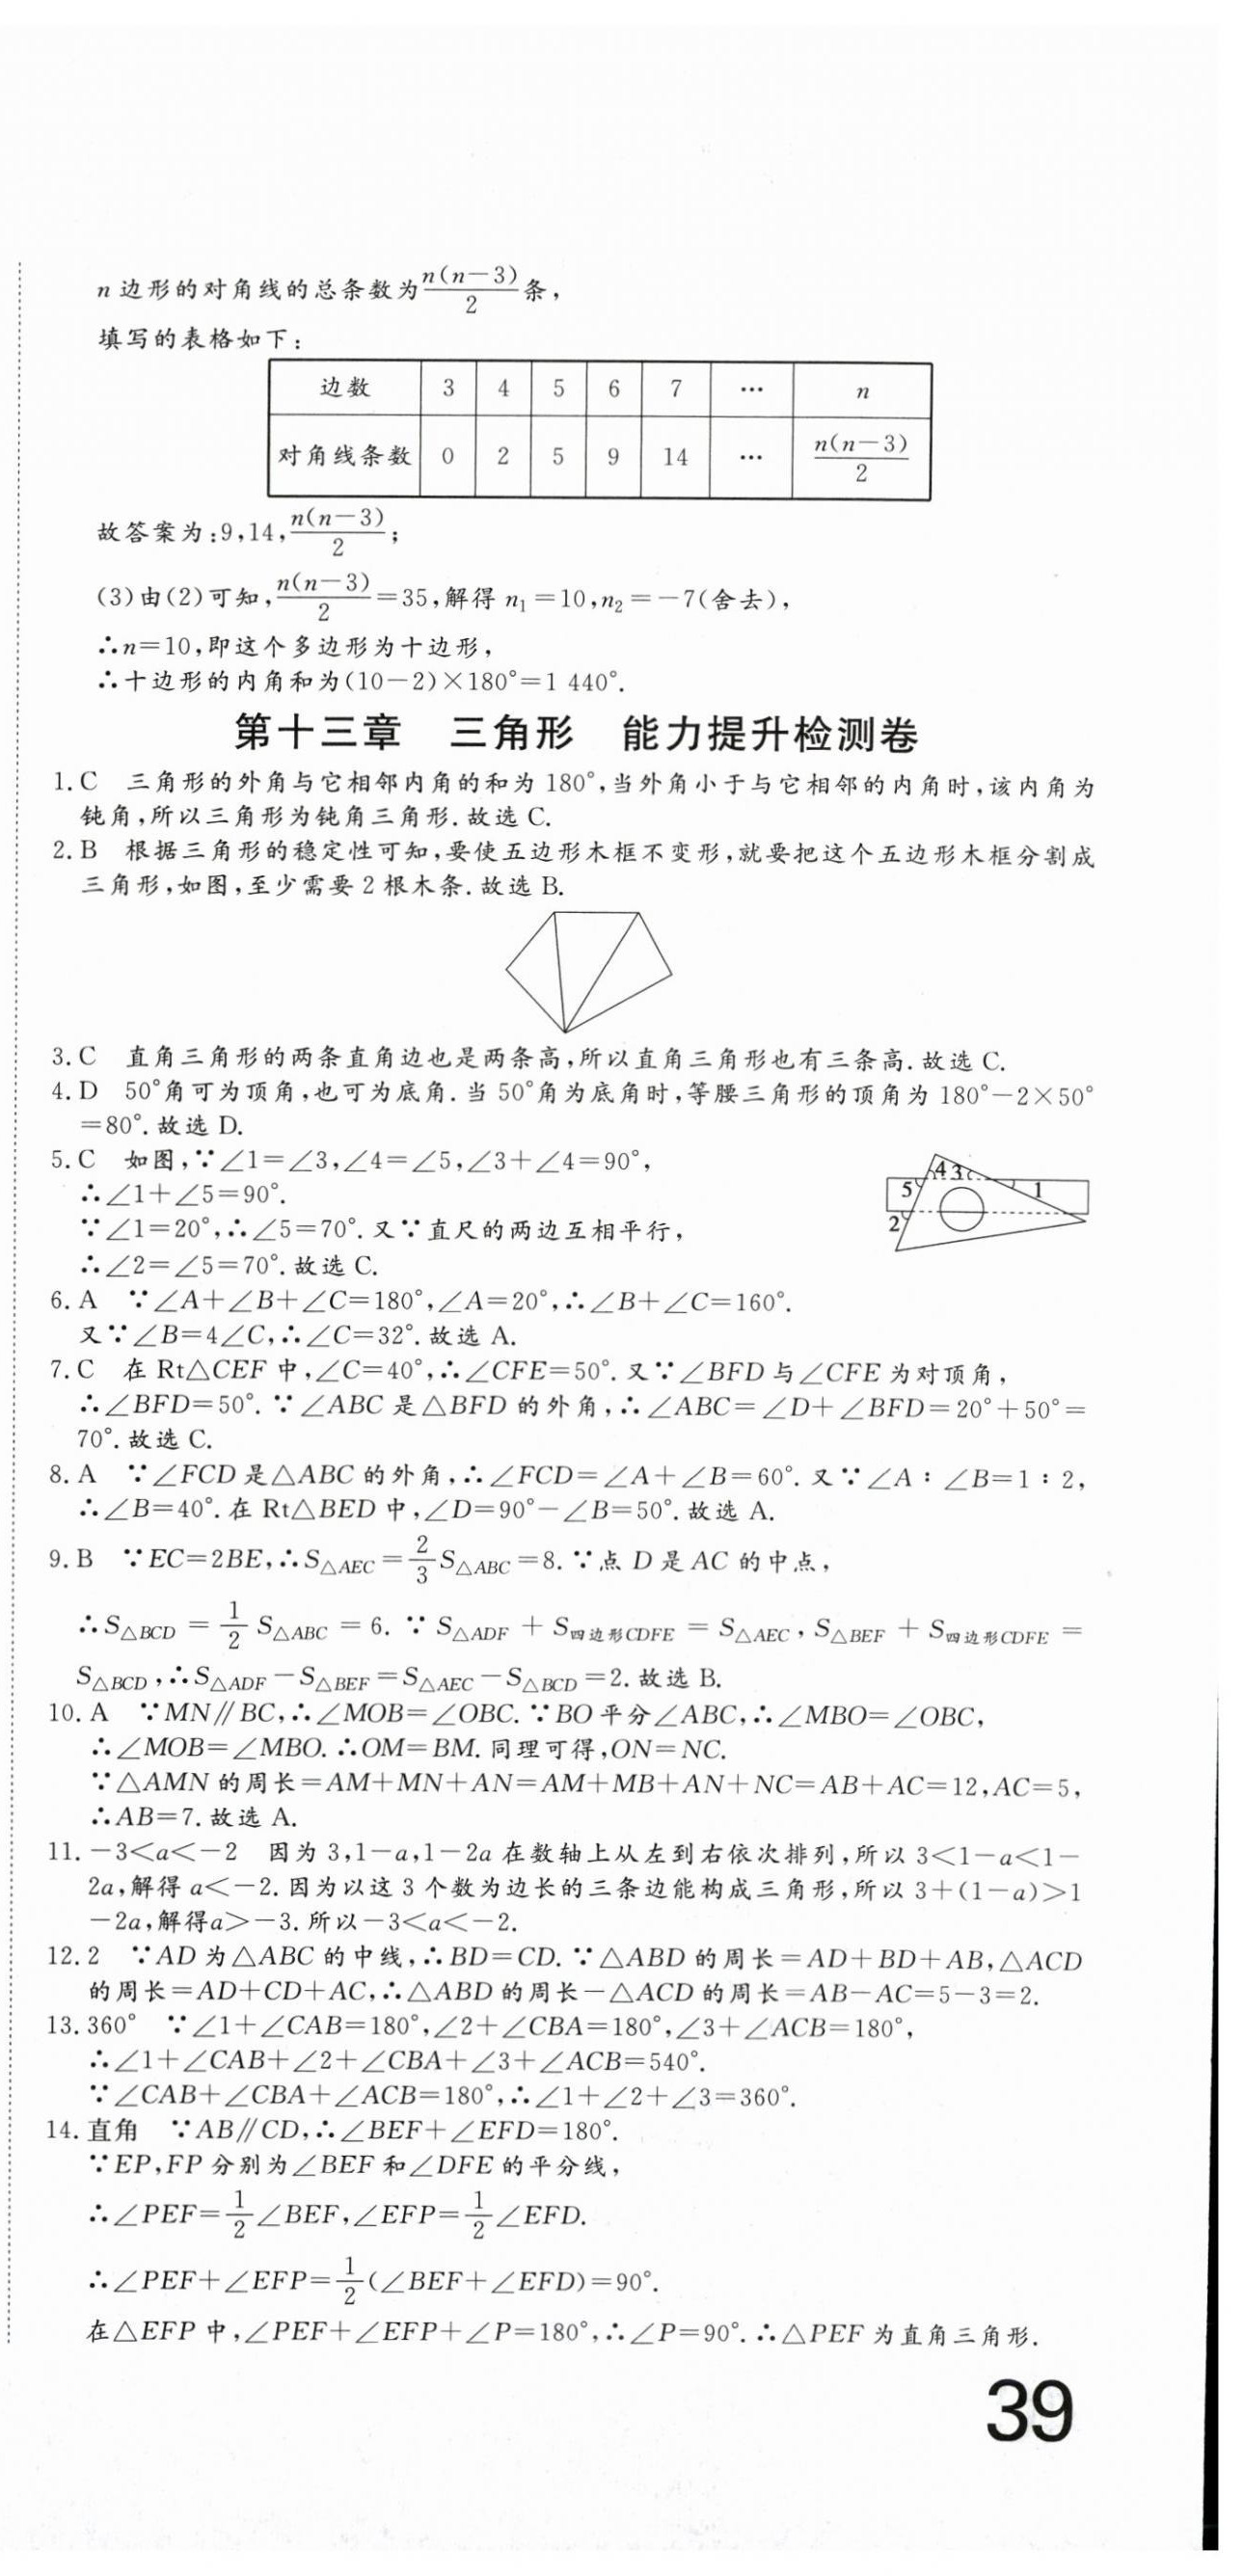 n边形的对角线的总条数为n(n-3)/2条,
填写的表格如下:
边数 3 4 5 6 7 … n
对角线条数 0 2 5 9 14 … n(n-3)/2
故答案为:9,14,n(n-3)/2;
(3)由(2)可知,n(n-3)/2=35,解得n₁=10,n₂=-7(舍去),
∴n=10,即这个多边形为十边形,
∴十边形的内角和为(10-2)×180°=1 440°.
第十三章 三角形 能力提升检测卷
1.C 三角形的外角与它相邻内角的和为180°,当外角小于与它相邻的内角时,该内角为
钝角,所以三角形为钝角三角形.故选C.
2.B 根据三角形的稳定性可知,要使五边形木框不变形,就要把这个五边形木框分割成
三角形,如图,至少需要2根木条.故选B.
3.C 直角三角形的两条直角边也是两条高,所以直角三角形也有三条高.故选C.
4.D 50°角可为顶角,也可为底角.当50°角为底角时,等腰三角形的顶角为180°-2×50°
=80°.故选D.
5.C 如图,∵∠1=∠3,∠4=∠5,∠3+∠4=90°,
∴∠1+∠5=90°.
∵∠1=20°,∴∠5=70°.又∵直尺的两边互相平行,
∴∠2=∠5=70°.故选C.
4 3
5 1
2
6.A ∵∠A+∠B+∠C=180°,∠A=20°,∴∠B+∠C=160°.
又∵∠B=4∠C,∴∠C=32°.故选A.
7.C 在Rt△CEF中,∠C=40°,∴∠CFE=50°.又∵∠BFD与∠CFE为对顶角,
∴∠BFD=50°.∵∠ABC是△BFD的外角,∴∠ABC=∠D+∠BFD=20°+50°=
70°.故选C.
8.A ∵∠FCD是△ABC的外角,∴∠FCD=∠A+∠B=60°.又∵∠A∶∠B=1∶2,
∴∠B=40°.在Rt△BED中,∠D=90°-∠B=50°.故选A.
9.B ∵EC=2BE,∴S△AEC=2/3S△ABC=8.∵点D是AC的中点,
∴S△BCD=1/2S△ABC=6.∵S△ADF+S四边形CDFE=S△AEC,S△BEF+S四边形CDFE=
S△BCD,∴S△ADF-S△BEF=S△AEC-S△BCD=2.故选B.
10.A ∵MN∥BC,∴∠MOB=∠OBC.∵BO平分∠ABC,∴∠MBO=∠OBC,
∴∠MOB=∠MBO.∴OM=BM.同理可得,ON=NC.
∵△AMN的周长=AM+MN+AN=AM+MB+AN+NC=AB+AC=12,AC=5,
∴AB=7.故选A.
11.-3<a<-2 因为3,1-a,1-2a在数轴上从左到右依次排列,所以3<1-a<1-
2a,解得a<-2.因为以这3个数为边长的三条边能构成三角形,所以3+(1-a)>1
-2a,解得a>-3.所以-3<a<-2.
12.2 ∵AD为△ABC的中线,∴BD=CD.∵△ABD的周长=AD+BD+AB,△ACD
的周长=AD+CD+AC,∴△ABD的周长-△ACD的周长=AB-AC=5-3=2.
13.360° ∵∠1+∠CAB=180°,∠2+∠CBA=180°,∠3+∠ACB=180°,
∴∠1+∠CAB+∠2+∠CBA+∠3+∠ACB=540°.
∵∠CAB+∠CBA+∠ACB=180°,∴∠1+∠2+∠3=360°.
14.直角 ∵AB∥CD,∴∠BEF+∠EFD=180°.
∵EP,FP分别为∠BEF和∠DFE的平分线,
∴∠PEF=1/2∠BEF,∠EFP=1/2∠EFD.
∴∠PEF+∠EFP=1/2(∠BEF+∠EFD)=90°.
在△EFP中,∠PEF+∠EFP+∠P=180°,∴∠P=90°.∴△PEF为直角三角形.
39